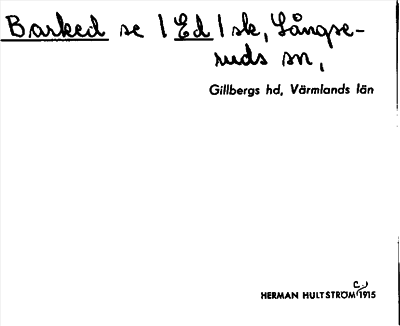 Barked se | Ed | sk, Långse-
ruds sn,
Gillbergs hd, Värmlands län
HERMAN HULTSTRÖM C:J 1915